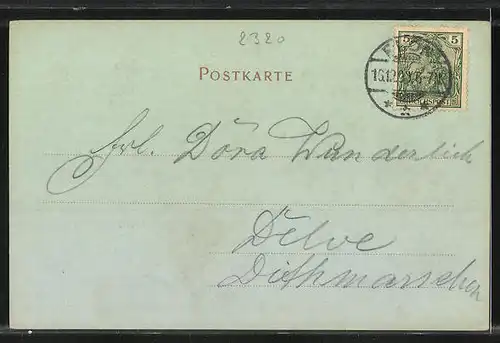 2320
POSTKARTE
5
Frl. Dora Wunderlich
Delve
Dithmarschen